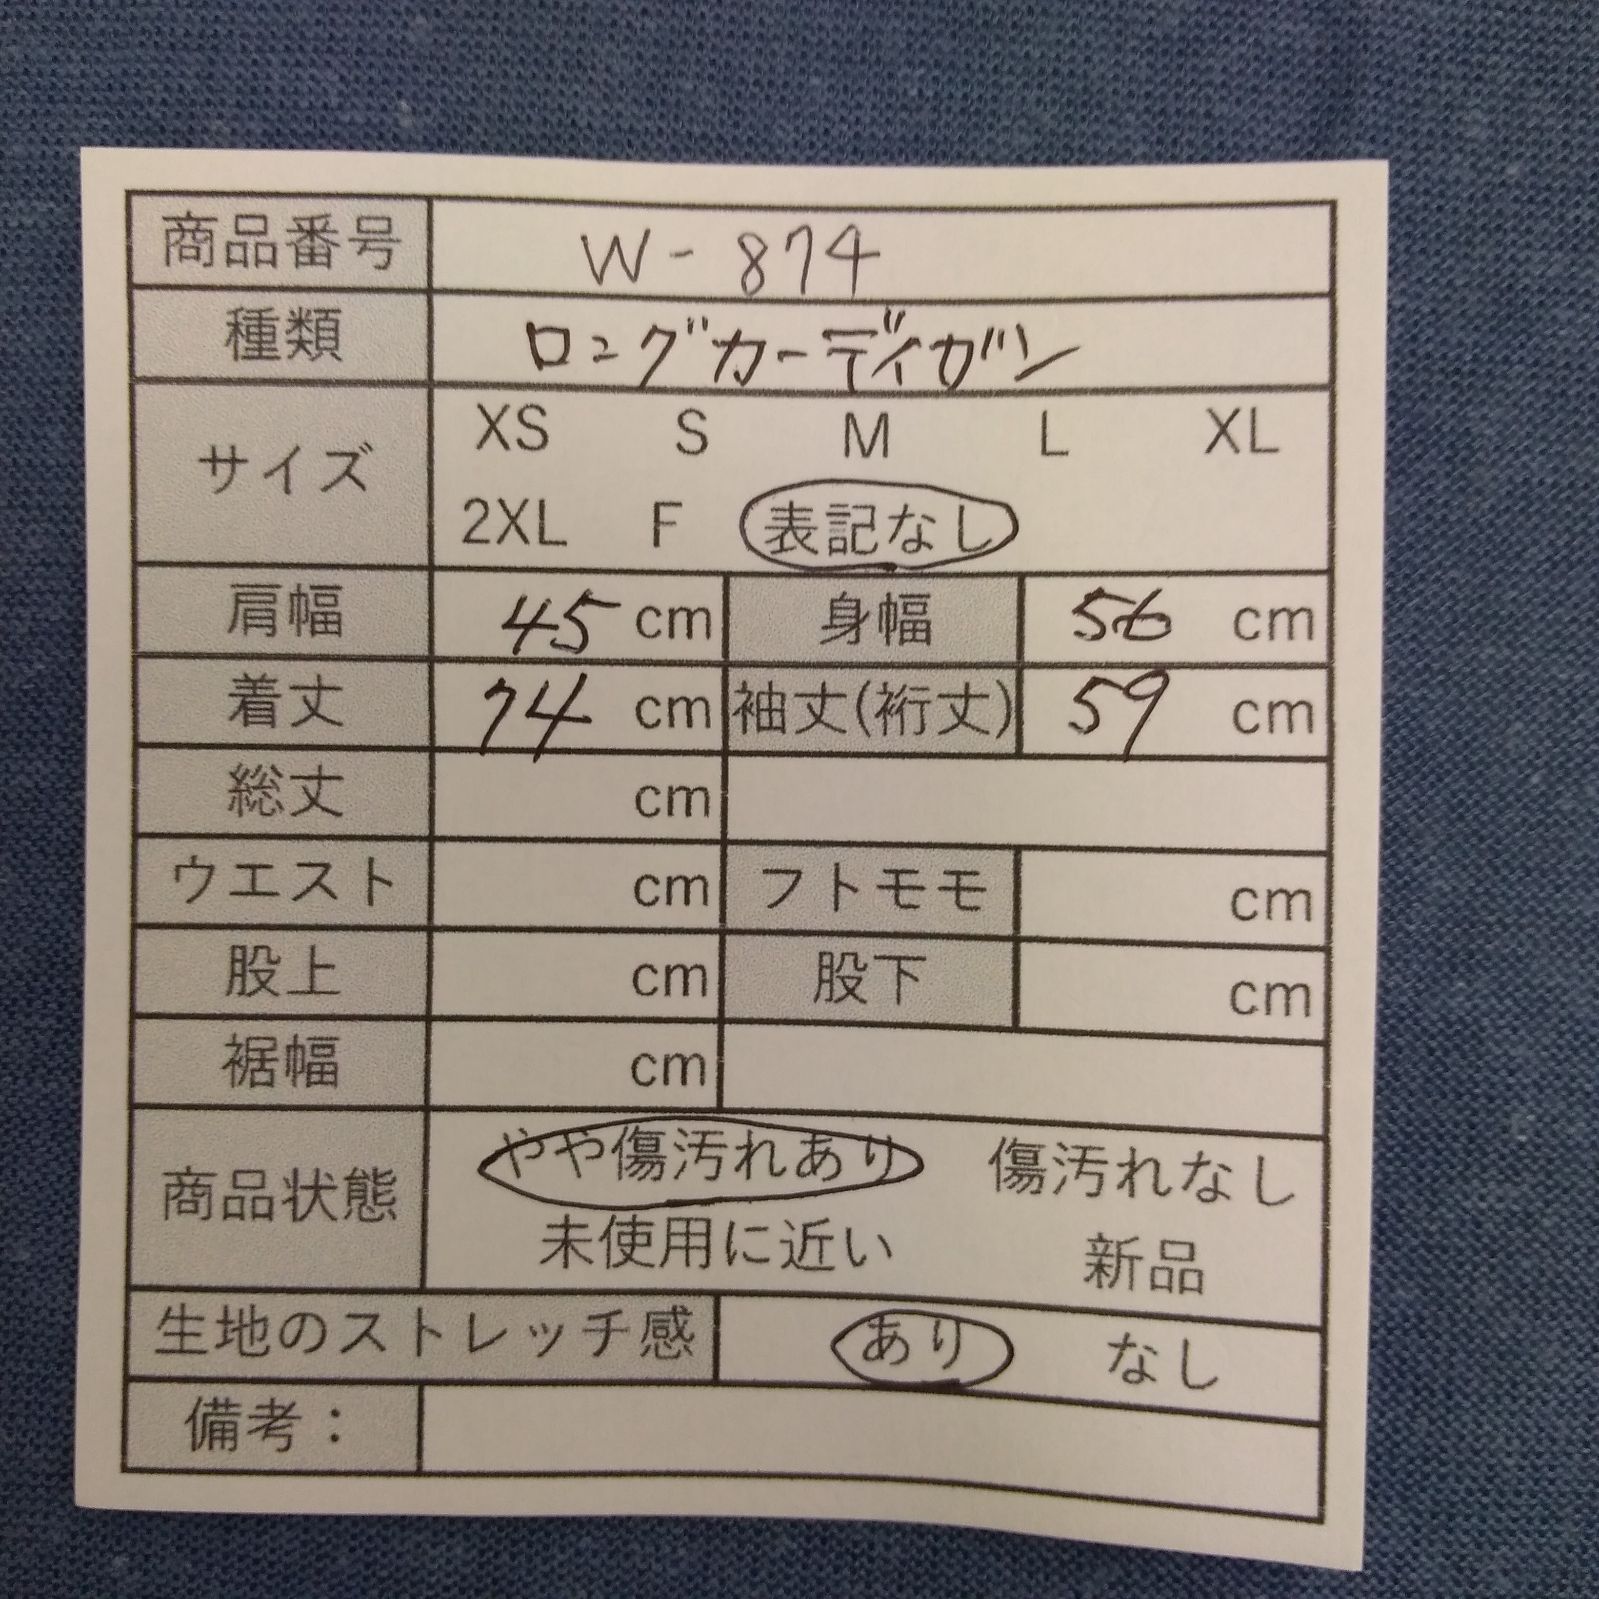 商品番号 W-874
種類 ロングカーディガン
サイズ XS S M L XL
2XL F 表記なし
肩幅 45 cm 身幅 56 cm
着丈 74 cm 袖丈(裄丈) 59 cm
総丈 cm
ウエスト cm フトモモ cm
股上 cm 股下 cm
裾幅 cm
商品状態 やや傷汚れあり 傷汚れなし
未使用に近い 新品
生地のストレッチ感 あり なし
備考：